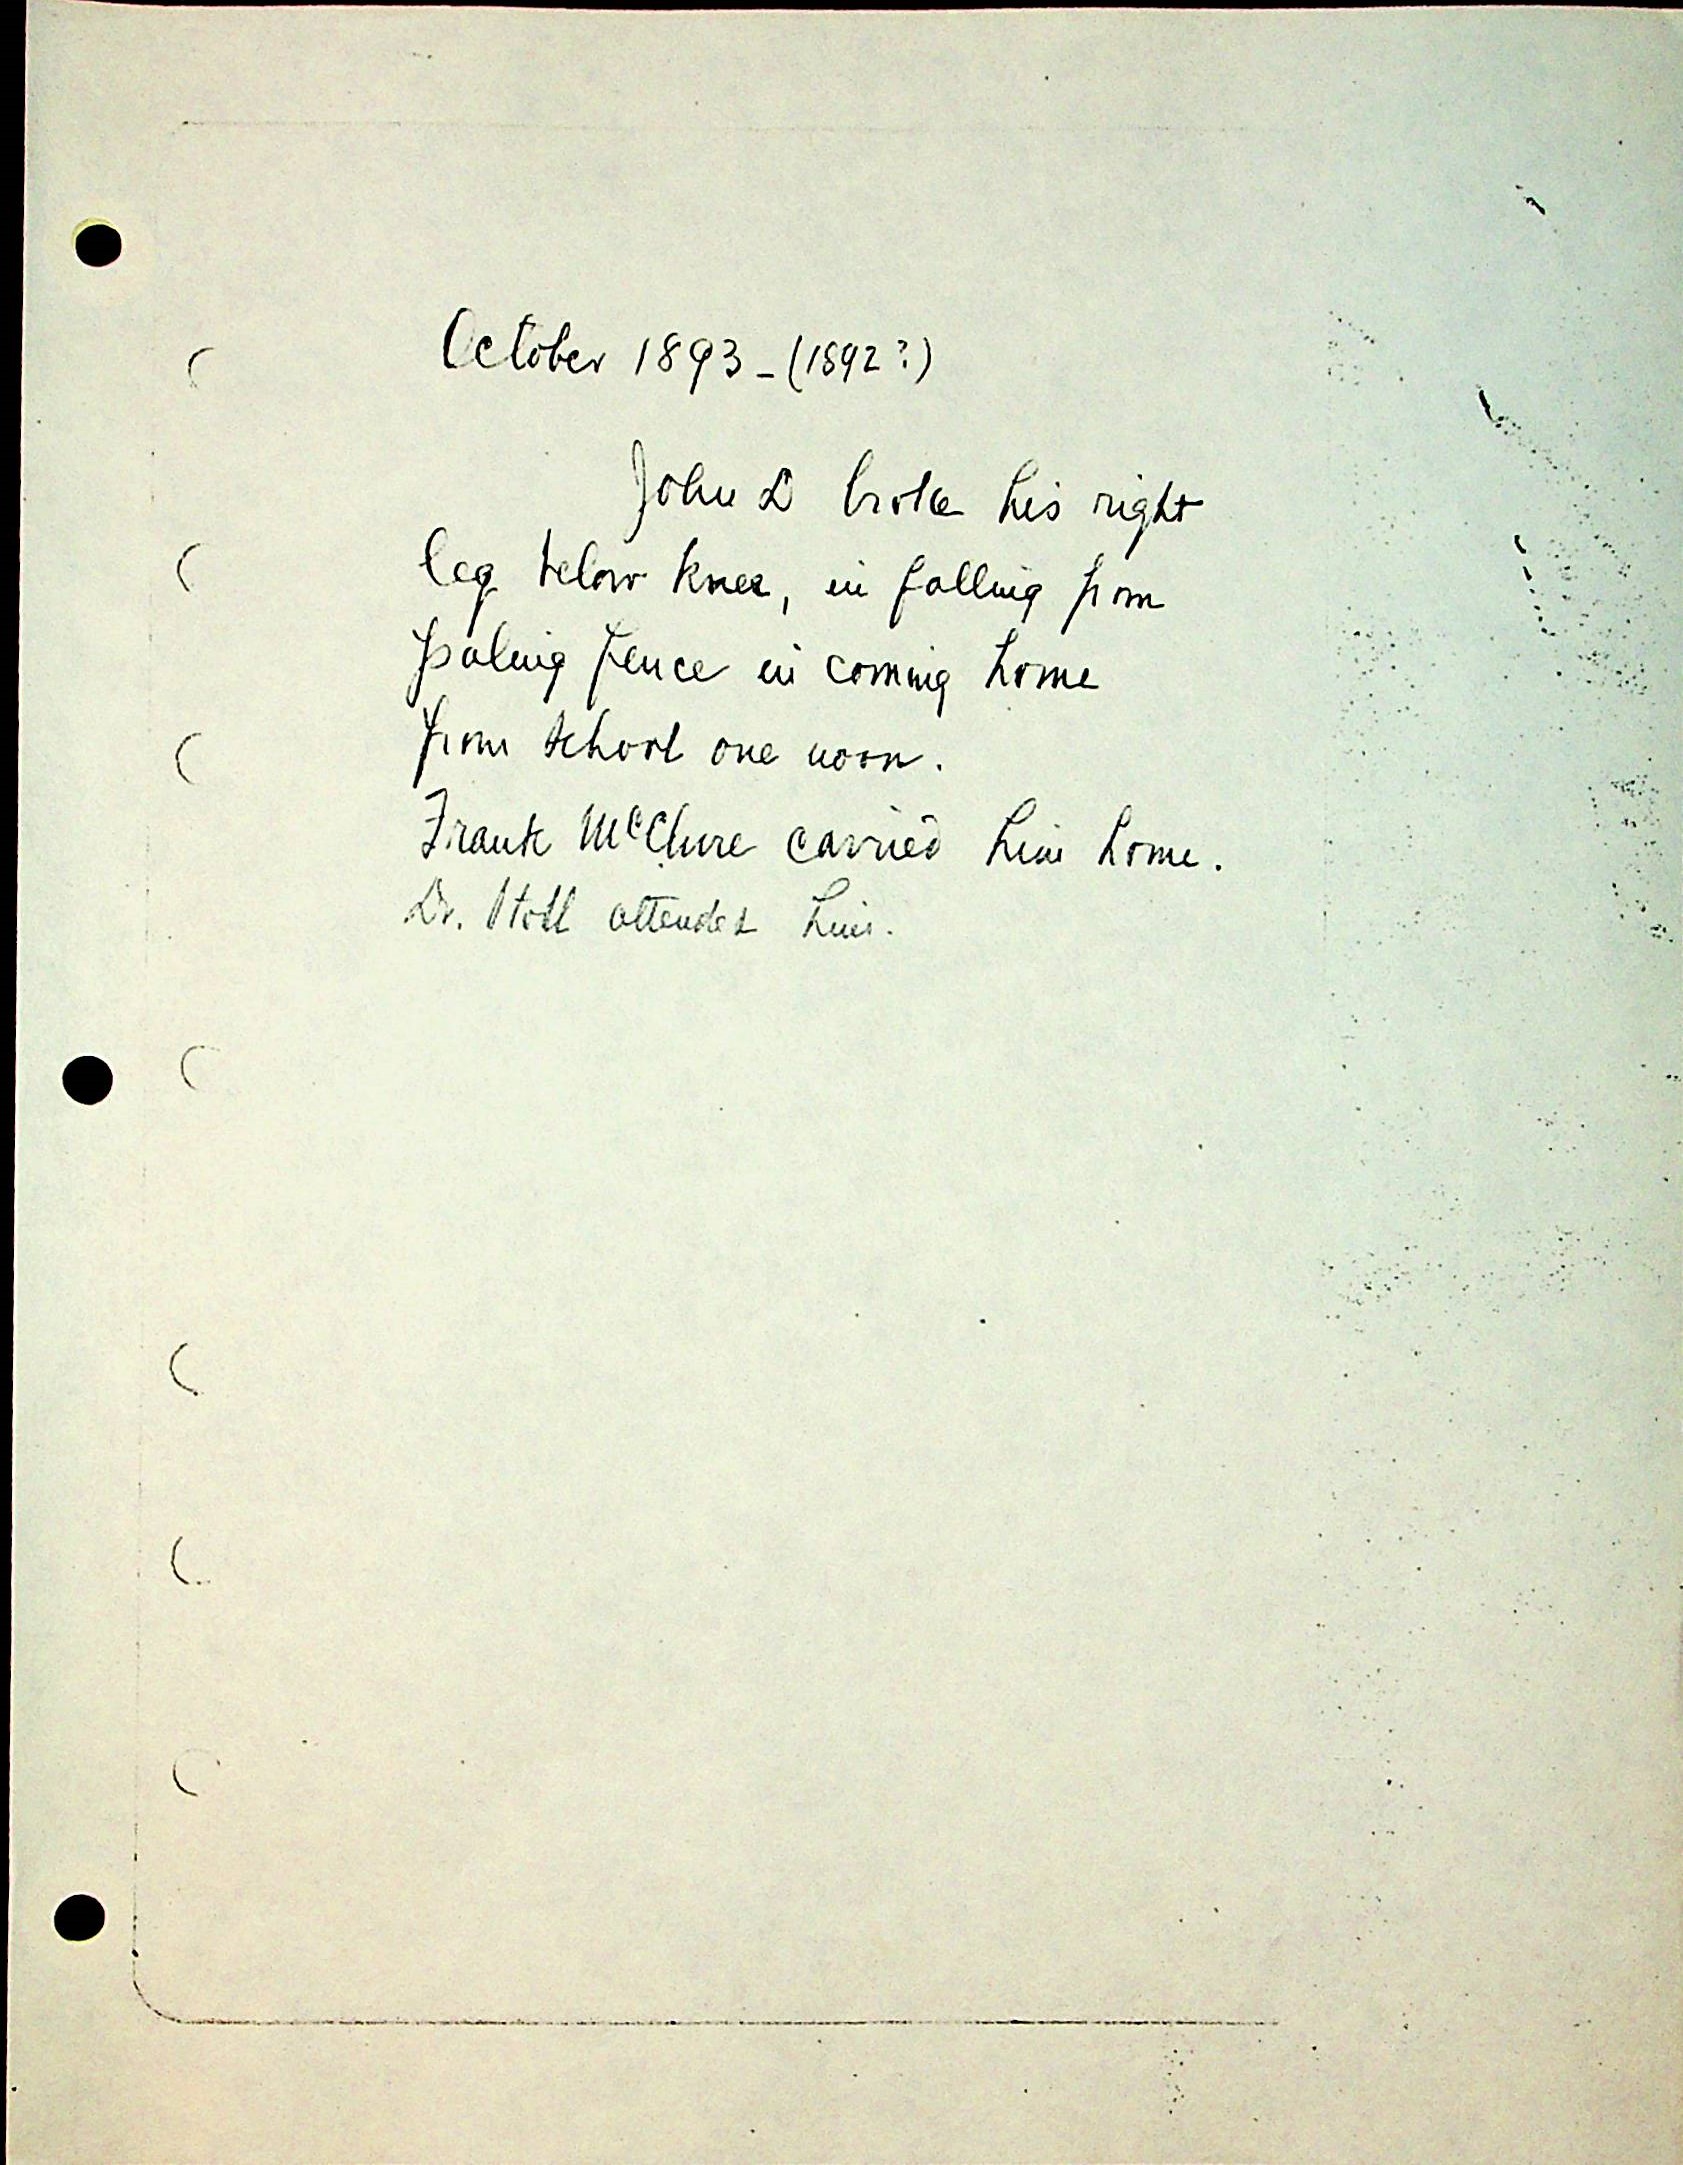 October 1893 - (1892?)
John D broke his right
leg below knee, in falling from
paling fence in coming home
from school one noon.
Frank McClure carried him home.
Dr. Stoll attended him.